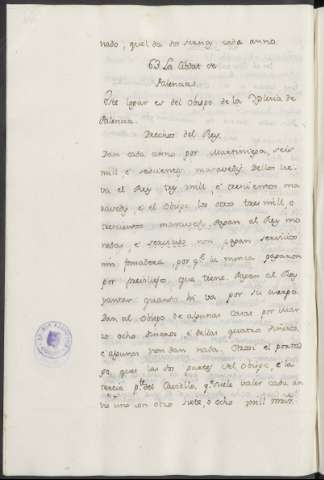 nado, quel da so seang cada anno.
63. La Cibdat de
Palencia.
Este logar es del Obispo de la Iglesia de
Palencia.
Derechos del Rey.
Dan cada anno por Martiniega, seis
mil e seiscientos maravedis. Dellos lie-
va el Rey tres mil, e trescientos ma
ravedis, e el Obispo los otros tres mil, e
trescientos maravedis. Pagan al Rey mo
nedas, e servicios non pagan servicios
nin fonsadera, por q.e nunca pagaron
por privilegio, que tiene. Pagan al Rey
yantar quando hi va por su cuerpo
Dan al Obispo de algunas casas por
ocho dineros, e dellas quatro dineros,
e algunas non dan nada. Otrosi el porta
go, que las dos partes del Obispo, e la
tercia p.te del Castillo, q. suele valer cada an
no uno con otro siete, o ocho mil mrs.